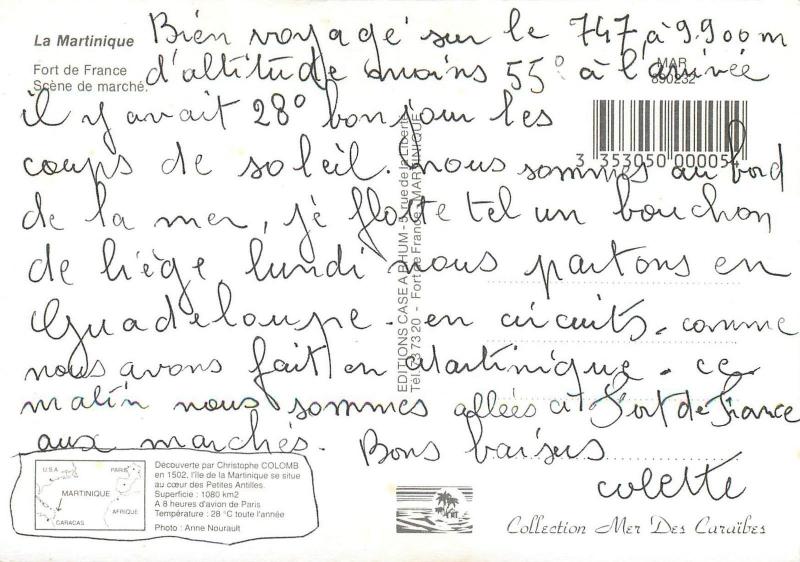 La Martinique
Fort de France
Scène de marché.
Bien voyagé sur le 747, à 9.900m
d'altitude moins 55° à l'arrivée
il y avait 28° bonjour les
coups de soleil. nous sommes au bord
de la mer, je flotte tel un bouchon
de liège lundi nous partons en
Guadeloupe. en circuits. comme
nous avons fait en Martinique. ce
matin nous sommes allées à Fort de France
aux marchés. Bons baisers
colette
MAR
890232
3 353050 000054
EDITIONS CASE A RHUM - 5, rue de la Liberté
Tél. 73 73 20 - Fort de France (MARTINIQUE)
U.S.A
PARIS
MARTINIQUE
AFRIQUE
CARACAS
Découverte par Christophe COLOMB
en 1502, l'île de la Martinique se situe
au cœur des Petites Antilles.
Superficie : 1080 km2
A 8 heures d'avion de Paris
Température : 28 °C toute l'année
Photo : Anne Nourault
Collection Mer Des Caraïbes